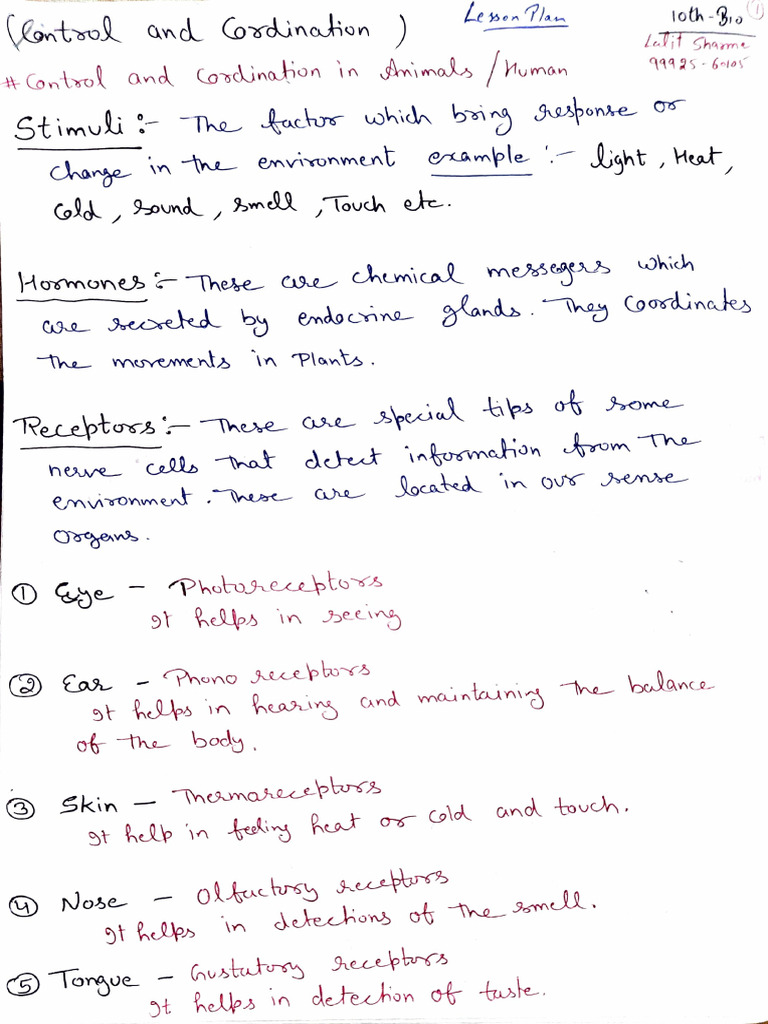 (Control and Cordination)
Lesson Plan
10th-Bio
1
Lalit Sharma
99925-60105
# Control and Cordination in Animals / Human
Stimuli :- The factor which bring response or
change in the environment example :- light, Heat,
Cold, Sound, Smell, Touch etc.
Hormones :- These are chemical messegers which
are secreted by endocrine glands. They Coordinates
the movements in Plants.
Receptors :- These are special tips of some
nerve cells that detect information from The
environment. These are located in our sense
organs.
① Eye - Photoreceptors
It helps in seeing
② Ear - Phono receptors
It helps in hearing and maintaining the balance
of the body.
③ Skin - Thermareceptors
It help in feeling heat or cold and touch.
④ Nose - Olfactory receptors
It helps in detections of the smell.
⑤ Tongue - Gustatory receptors
It helps in detection of taste.